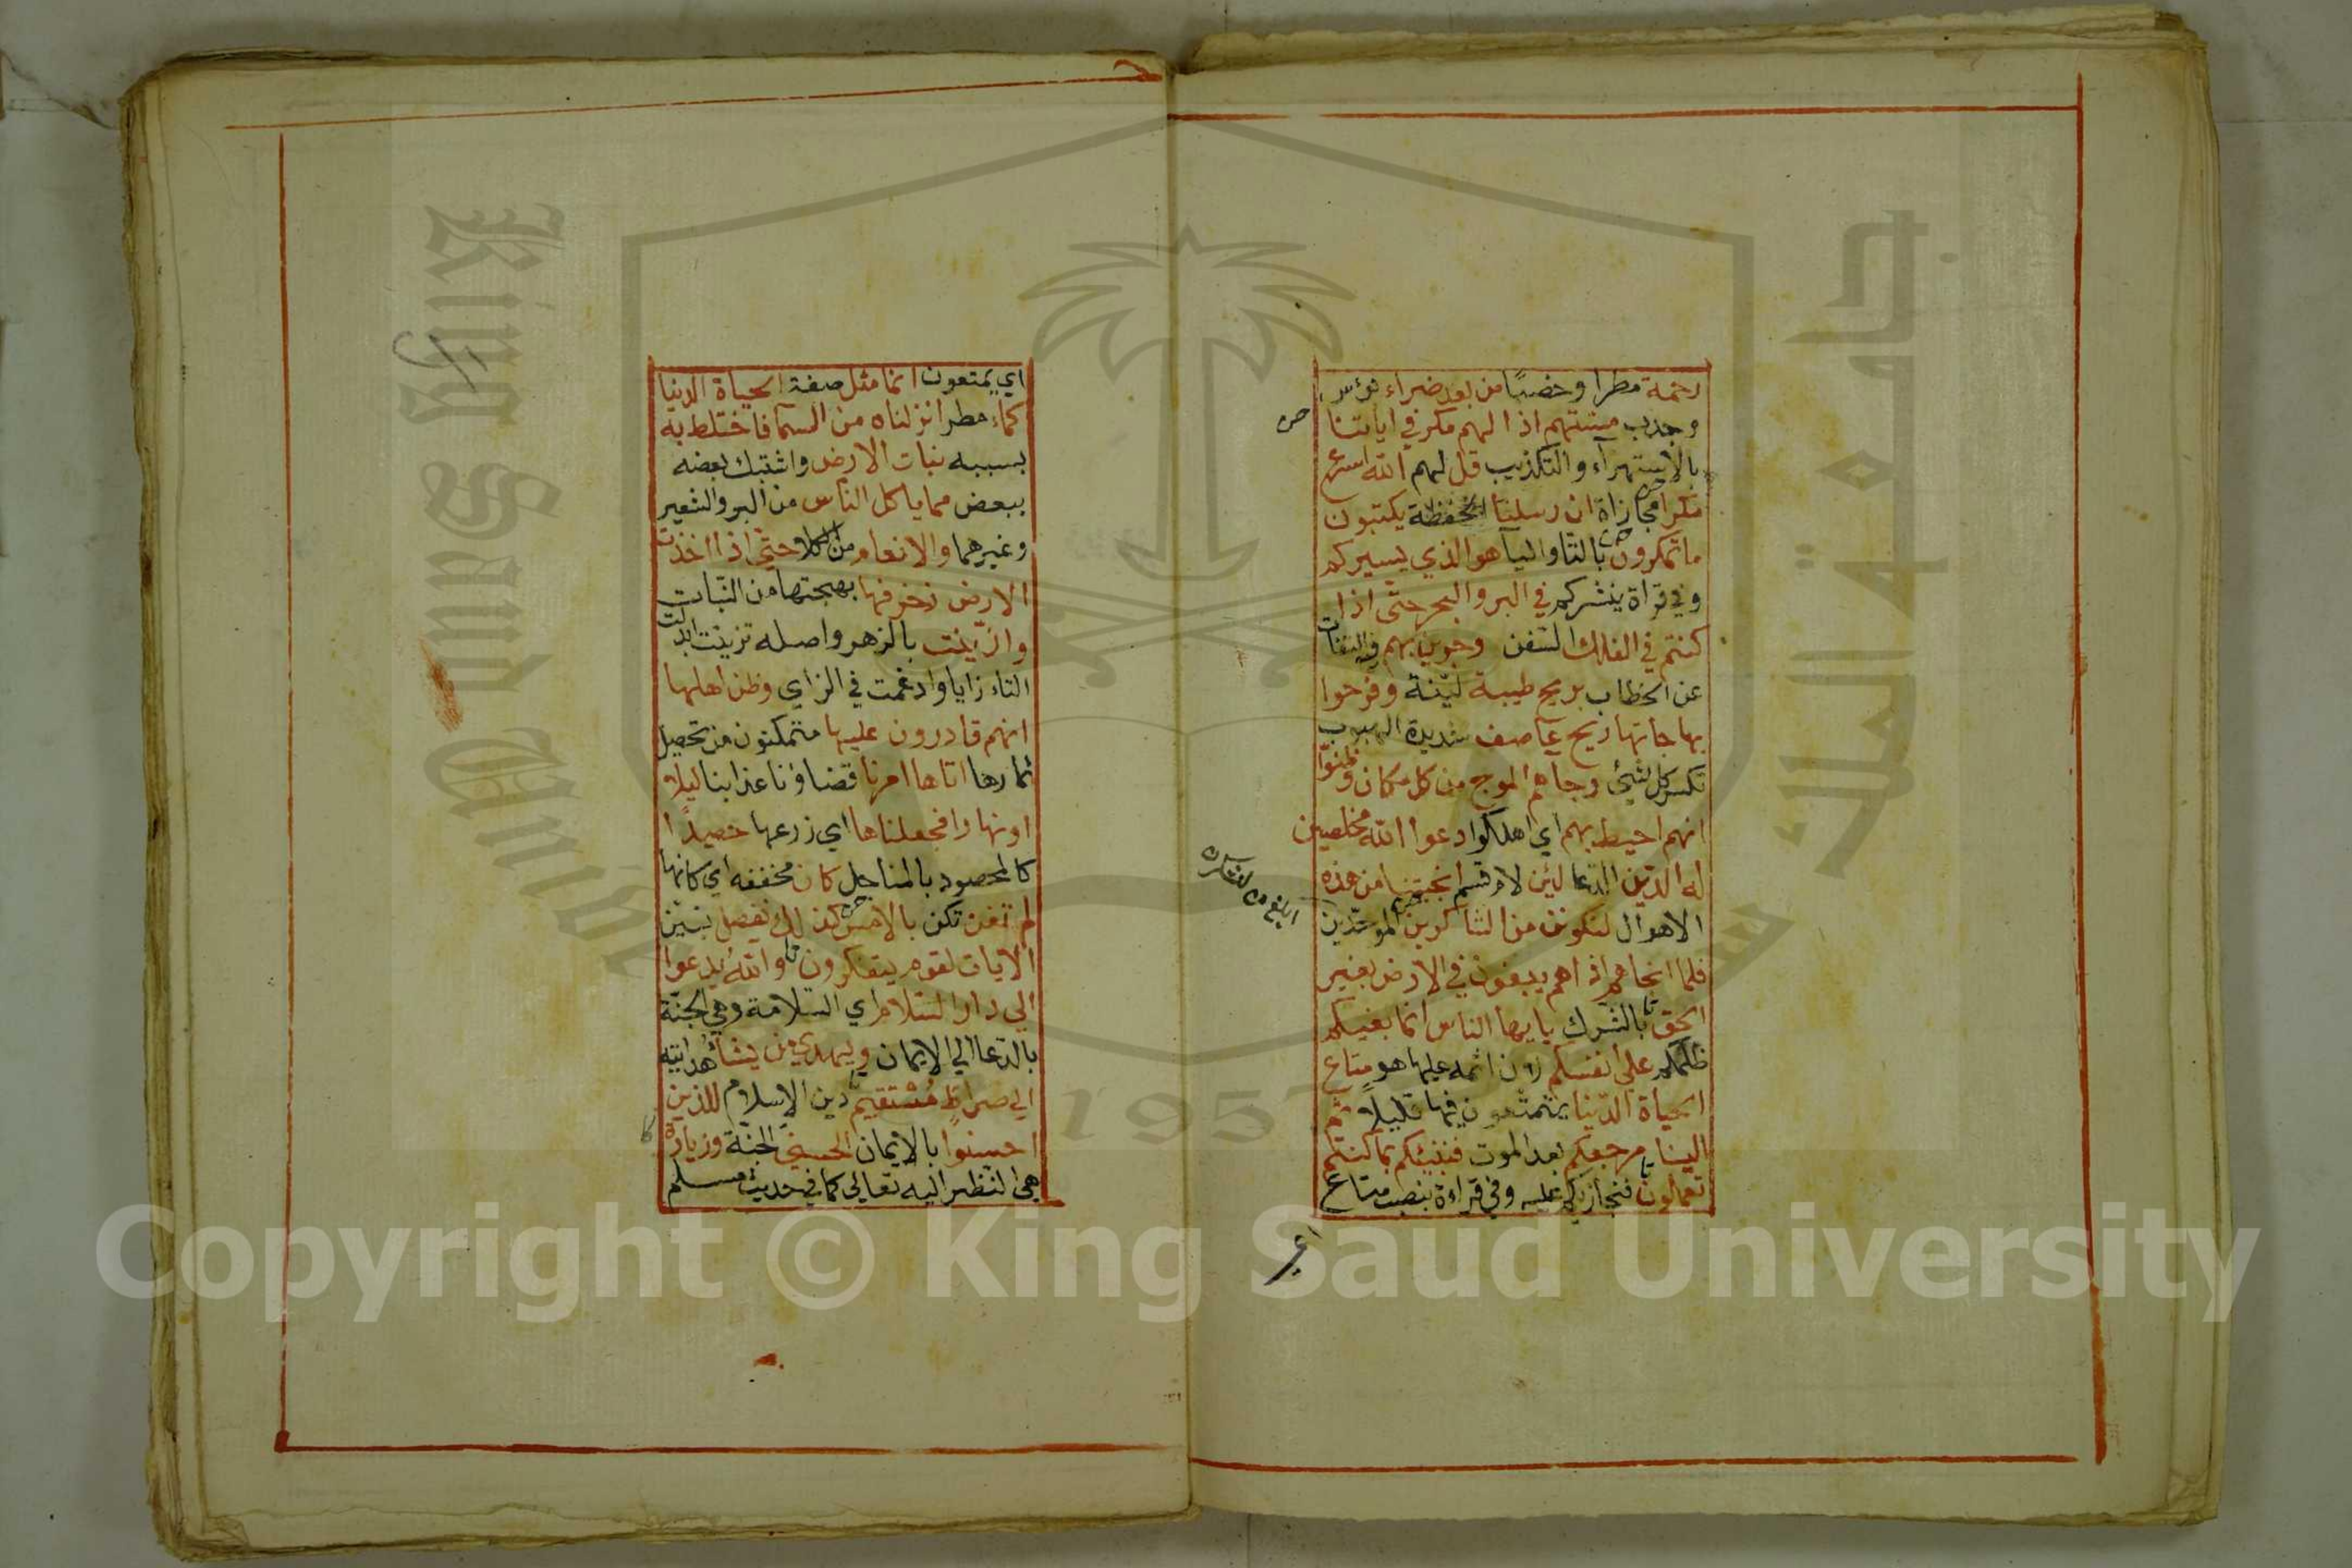 رحمة مطرا وخصبًا من بعد ضراء بؤس
وجدب مستهم اذا لهم مكر في اياتنا
بالاستهزآء والتكذيب قل لهم الله اسرع
مكرا مجازاة ان رسلنا الحفظة يكتبون
ما تمكرون بالتا واليا هو الذي يسيركم
وفي قراة ينشركم في البر والبحر حتّى اذا
كنتم في الفلك السّفن وجرين بهم فيه التفات
عن الخطاب بريح طيبة ليّنة وفرحوا
بها جاتها ريح عاصف شديدة الهبوب
تكسر كل شيئ وجاهم الموج من كل مكان وظنوّا
انهم احيط بهم اي اهلكوا دعوا الله مخلصين
له الدّين الدّعا لئن لام قسم انجيتنا من هذه
الاهوال لنكونن من الشاكرين الموحّدين
فلما انجاهم اذا هم يبغون في الارض بغير
الحق بالشرك يايها الناس انما بغيكم
ظلمكم على انفسكم لان اثمه عليها هو متاع
الحياة الدّنيا يتمتّعون فيها قليلاً ثم
الينا مرجعكم بعد الموت فننبئكم بما كنتم
تعملون فنجازيكم عليه وفي قراءة بنصب متاع
اي يمتعون انما مثل صفة الحياة الدنيا
كماء مطر انزلناه من السّما فاختلط به
بسببه نبات الارض واشتبك بعضه
ببعض مما ياكل الناس من البر والشعير
وغيرهما والانعام من الكلا حتّي اذا اخذت
الارض زخرفها بهجتها من النّبات
وازّينت بالزهر واصله تزينت ابدلت
التاء زايا وادغمت في الزاي وظن اهلها
انهم قادرون عليها متمكنون من تحصيل
ثمارها اتاها امرنا قضاؤنا عذابنا ليلا
او نهارا فجعلناها اي زرعها حصيدًا
كالمحصود بالمناجل كان مخففه اي كانها
لم تغن تكن بالامس كذلك نفصل نبيّن
الايات لقوم يتفكرون والله يدعوا
الي دار السّلام اي السّلامة وهي الجنّة
بالدّعا الي الايمان ويهدي من يشا هدايته
الي صراط مُسْتقيم دين الاسلام للذين
احسنوا بالايمان الحسني الجنّة وزيادة
هي النظر اليه تعالي كما في حديث مسلم
King Saud Unive
جامعة الملك س
1957
Copyright © King Saud University